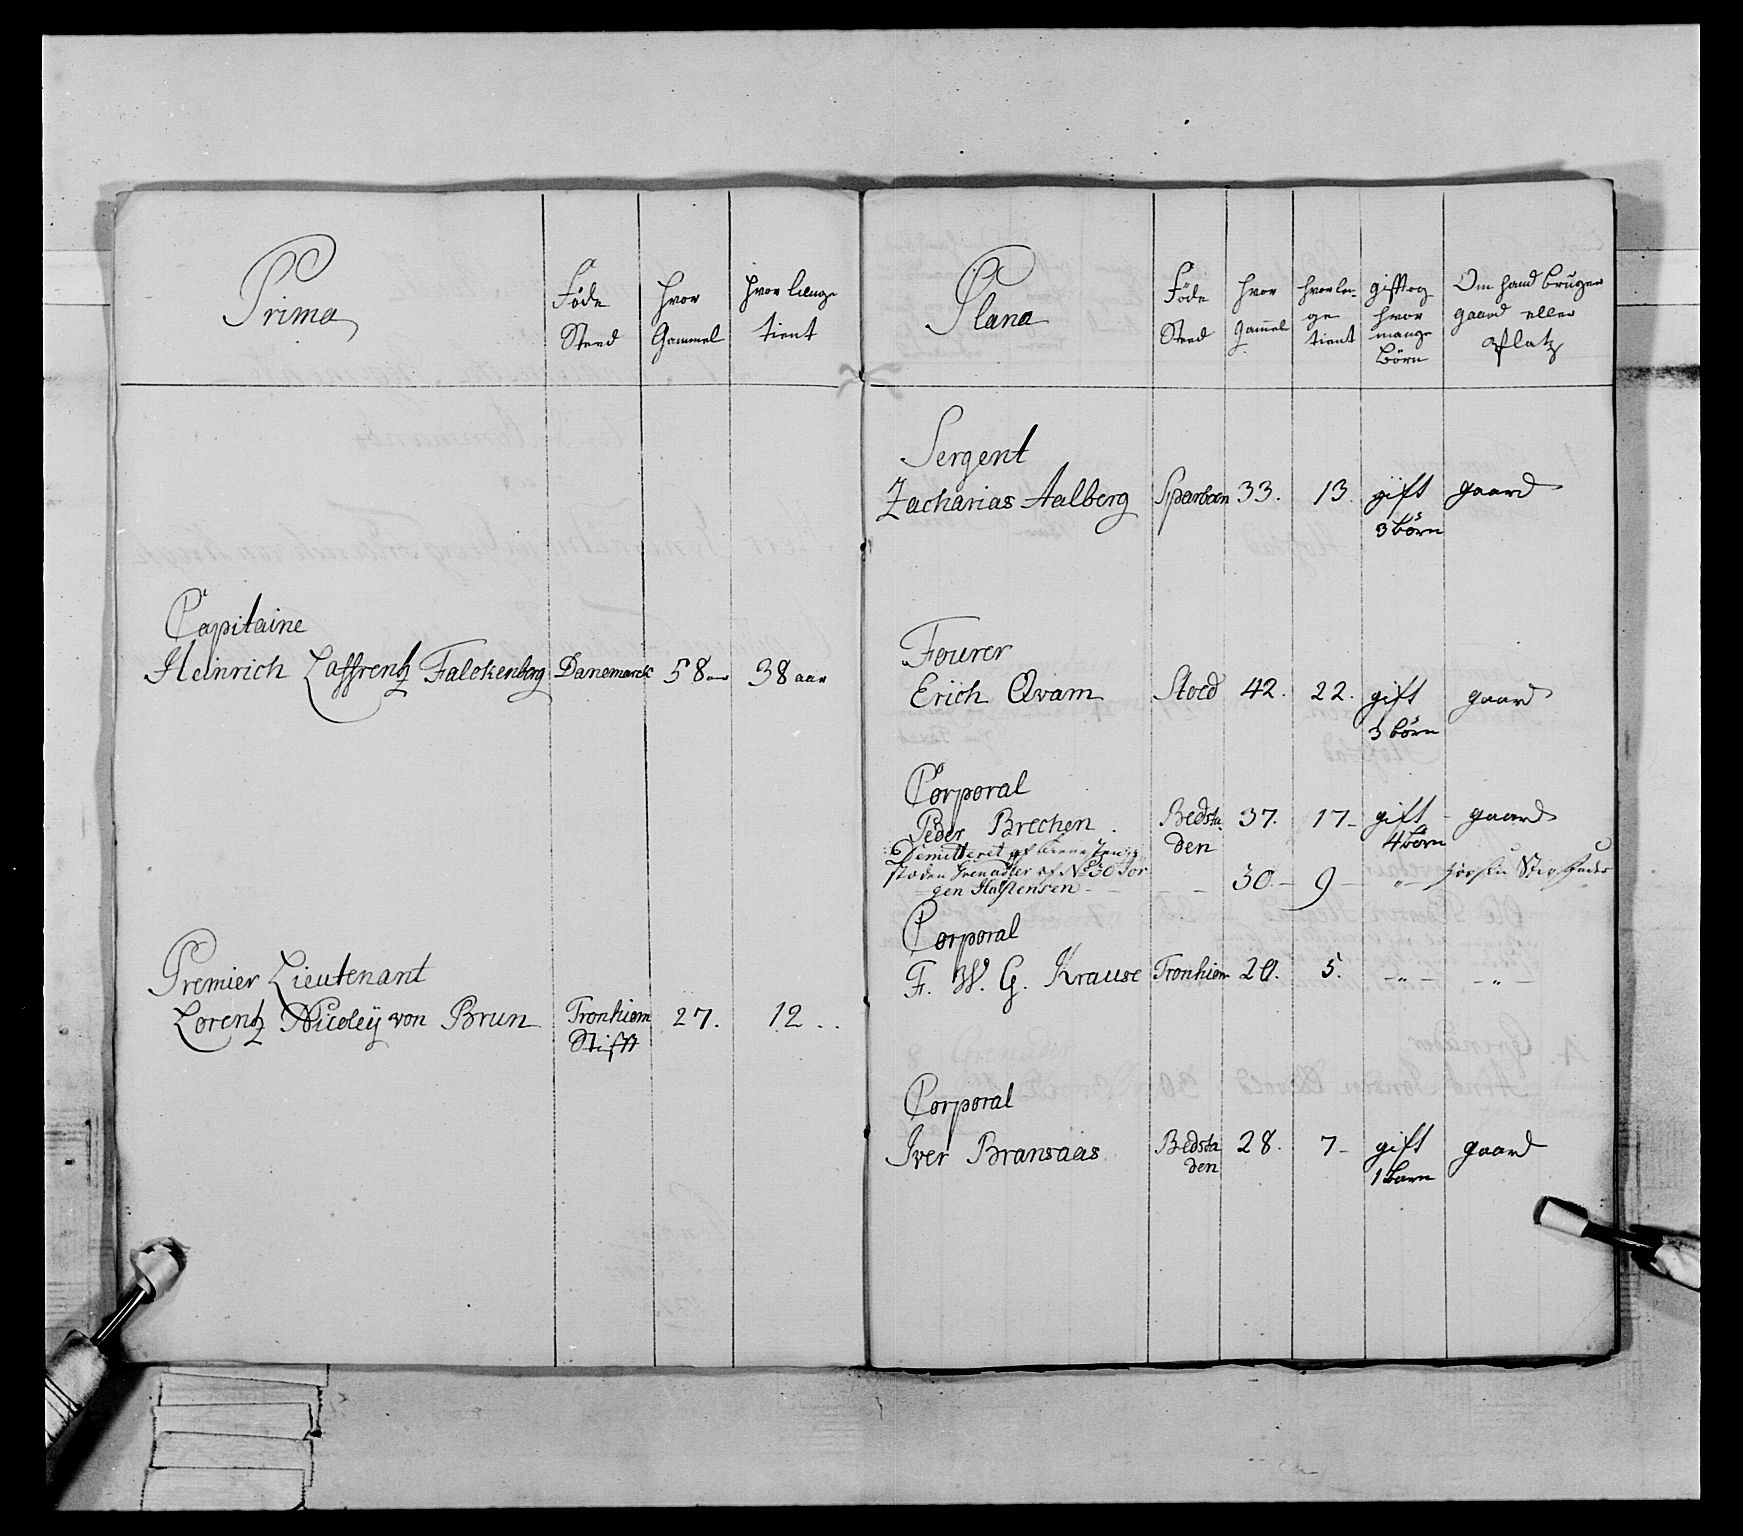 Prima
Føde
Steed
Hvor
Gammel
Hvor længe
tient
Capitaine
Heinrich Laffrentz Falckenberg Danemarck 58 aar 38 aar
Premier Lieutenant
Lorentz Nicoleÿ von Brun Tronhiem 27. 12..
Stifft
Plana
Føde
Steed
Hvor
Gam̄el
hvor len-
ge
tient
gifft og
hvor
mange
børn
Om hand bruger
gaard eller
Platz
Sergent
Zacharias Aalberg Sparboen 33. 13. gift gaard
3 børn
Fourer
Erich Qvam Stoed 42. 22. gift gaard
3 børn
Corporal
Peder Brechen. Bedsta 37. 17- gift - gaard
den 4 børn
Demitteret af
steden Grenadier af No 30 Jor
gen Halstensen - 30.- 9 - " -
Corporal
F. W. G. Krause Tronhiem 20. 5. -"- -"-
Corporal
Iver Bransaas Bedsta 28. 7- gift gaard
den 1 barn